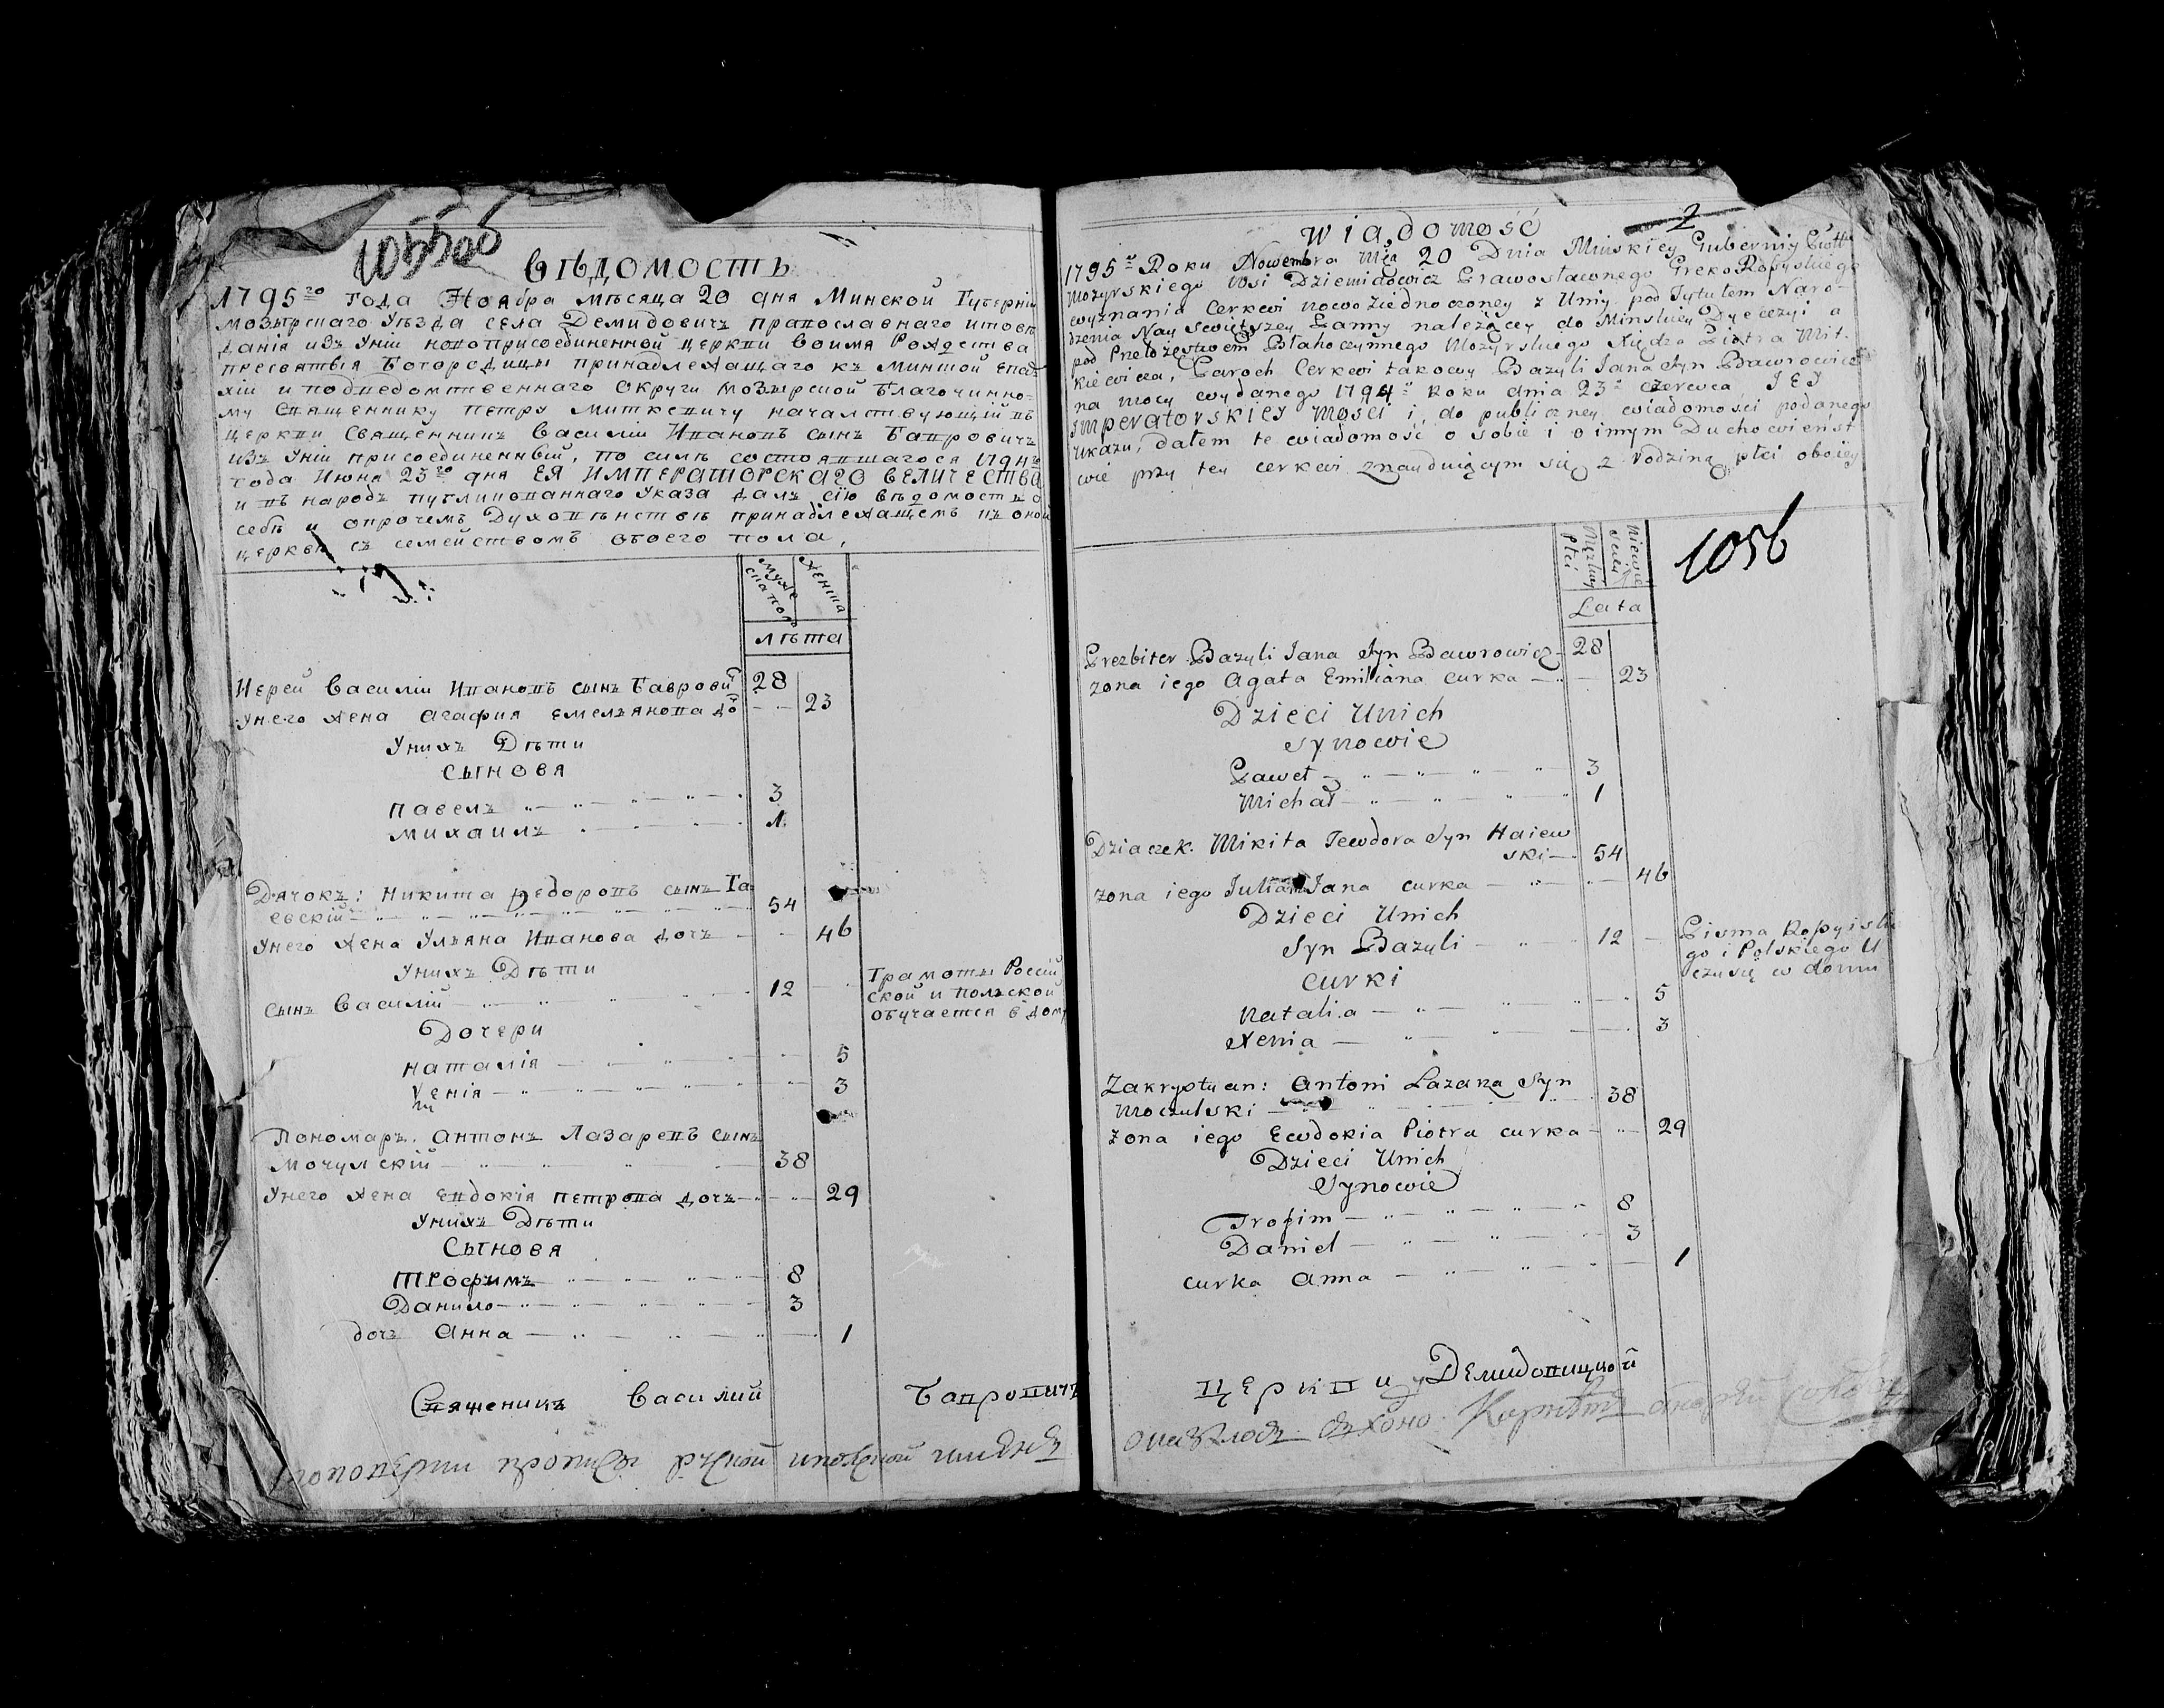 1055об
ВѢДОМОСТЬ
1795го года Ноября мѣсяца 20 дня Минской Губерніи
мозырскаго уѣзда села Демидовичъ православнаго исповѣ
данія изъ Уніи новоприсоединенной церкви во имя Рождества
пресвятыя Богородицы принадлежащаго къ Минской Епар
хіи и подведомственнаго Округи мозырской Благочинно-
му священнику петру миткевичу началствующій въ
церкви священникъ Василіи Ивановъ сынъ Бавровичъ
изъ Уніи присоединенный, по силѣ состоявшагося 1794го
года Июня 23го дня ЕЯ ИМПЕРАТОРСКАГО ВЕЛИЧЕСТВА
и въ народъ публикованнаго Указа далъ сію вѣдомость о
себѣ и опрочемъ Духовѣнствѣ принадлежащемъ къ оной
церквѣ съ семействомъ обоего пола,
муже
ска пол
женска
лѣта
Иерей Василіи Ивановъ сынъ Баврович 28
Унего жена Агафия емельянова до 23
Унихъ Дѣти
сынОвя
павелъ 3
михаилъ 1
Дячокъ: Никита Федоровъ сынъ Га
евскій 54
Унего жена Ульяна Иванова дочь 46
Унихъ Дѣти
сынъ Василій 12 Грамоты Россій
ской и польской
обучается в дом
Дочери
наталія 5
Ксенія 3
Пономаръ: антонъ Лазаревъ сынъ
Мочулскій 38
Унего жена евдокія петрова дочь 29
Унихъ Дѣти
сынОвя
трофимъ 8
Данило 3
дочь анна 1
Священикъ Василий Бавровичъ
Wiadomość
2
1795го Roku Nowembra Mca 20 Dnia Minskiey Gubernij Powtu
Mozyrskiego Wsi Dziemidowicz Prawosławnego GrekoRossyiskiego
wyznania Cerkwi nowoziednoczoney z Unij pod Tytułem Naro-
dzenia Nayswiętszey Panny należącey do Minskiey Dyecezyi a
pod Przełożestwem Błahoczynnego Mozyrskiego Xiędza Piotra Mit-
kiewicza, Paroch Cerkwi takowy Bazyli Jana Syn Bawrowicz
na mocy wydanego 1794го Roku dnia 23го czerwca JEJ
Imperatorskiey Mosci i do publiczney wiadomości podanego
ukazu, dałem te wiadomość o sobie i o innym Duchowieńst
wie przy tey cerkwi znayduiącym się z Rodziną płci oboiey
Męzkiey
Płci
Niewie
sciey
Lata
1056
Prezbiter Bazyli Jana Syn Bawrowicz 28
zona iego Agata Emiliana curka 23
Dzieci Unich
Synowie
Paweł 3
Michał 1
Dziaczek. Mikita Tewdora Syn Haiew
ski 54
zona iego Julia Jana curka 46
Dzieci Unich
Syn Bazyli 12 Pisma Rossyisk
go i Polskiego U
czy się w domu
curki
Natalia 5
Xenia 3
Zakrystyan: Antoni Lazarza Syn
Moczulski 38
zona iego Ewdokia Piotra curka 29
Dzieci Unich
Synowie
Trofim 8
Daniel 3
curka Anna 1
церкви Демидовицкой